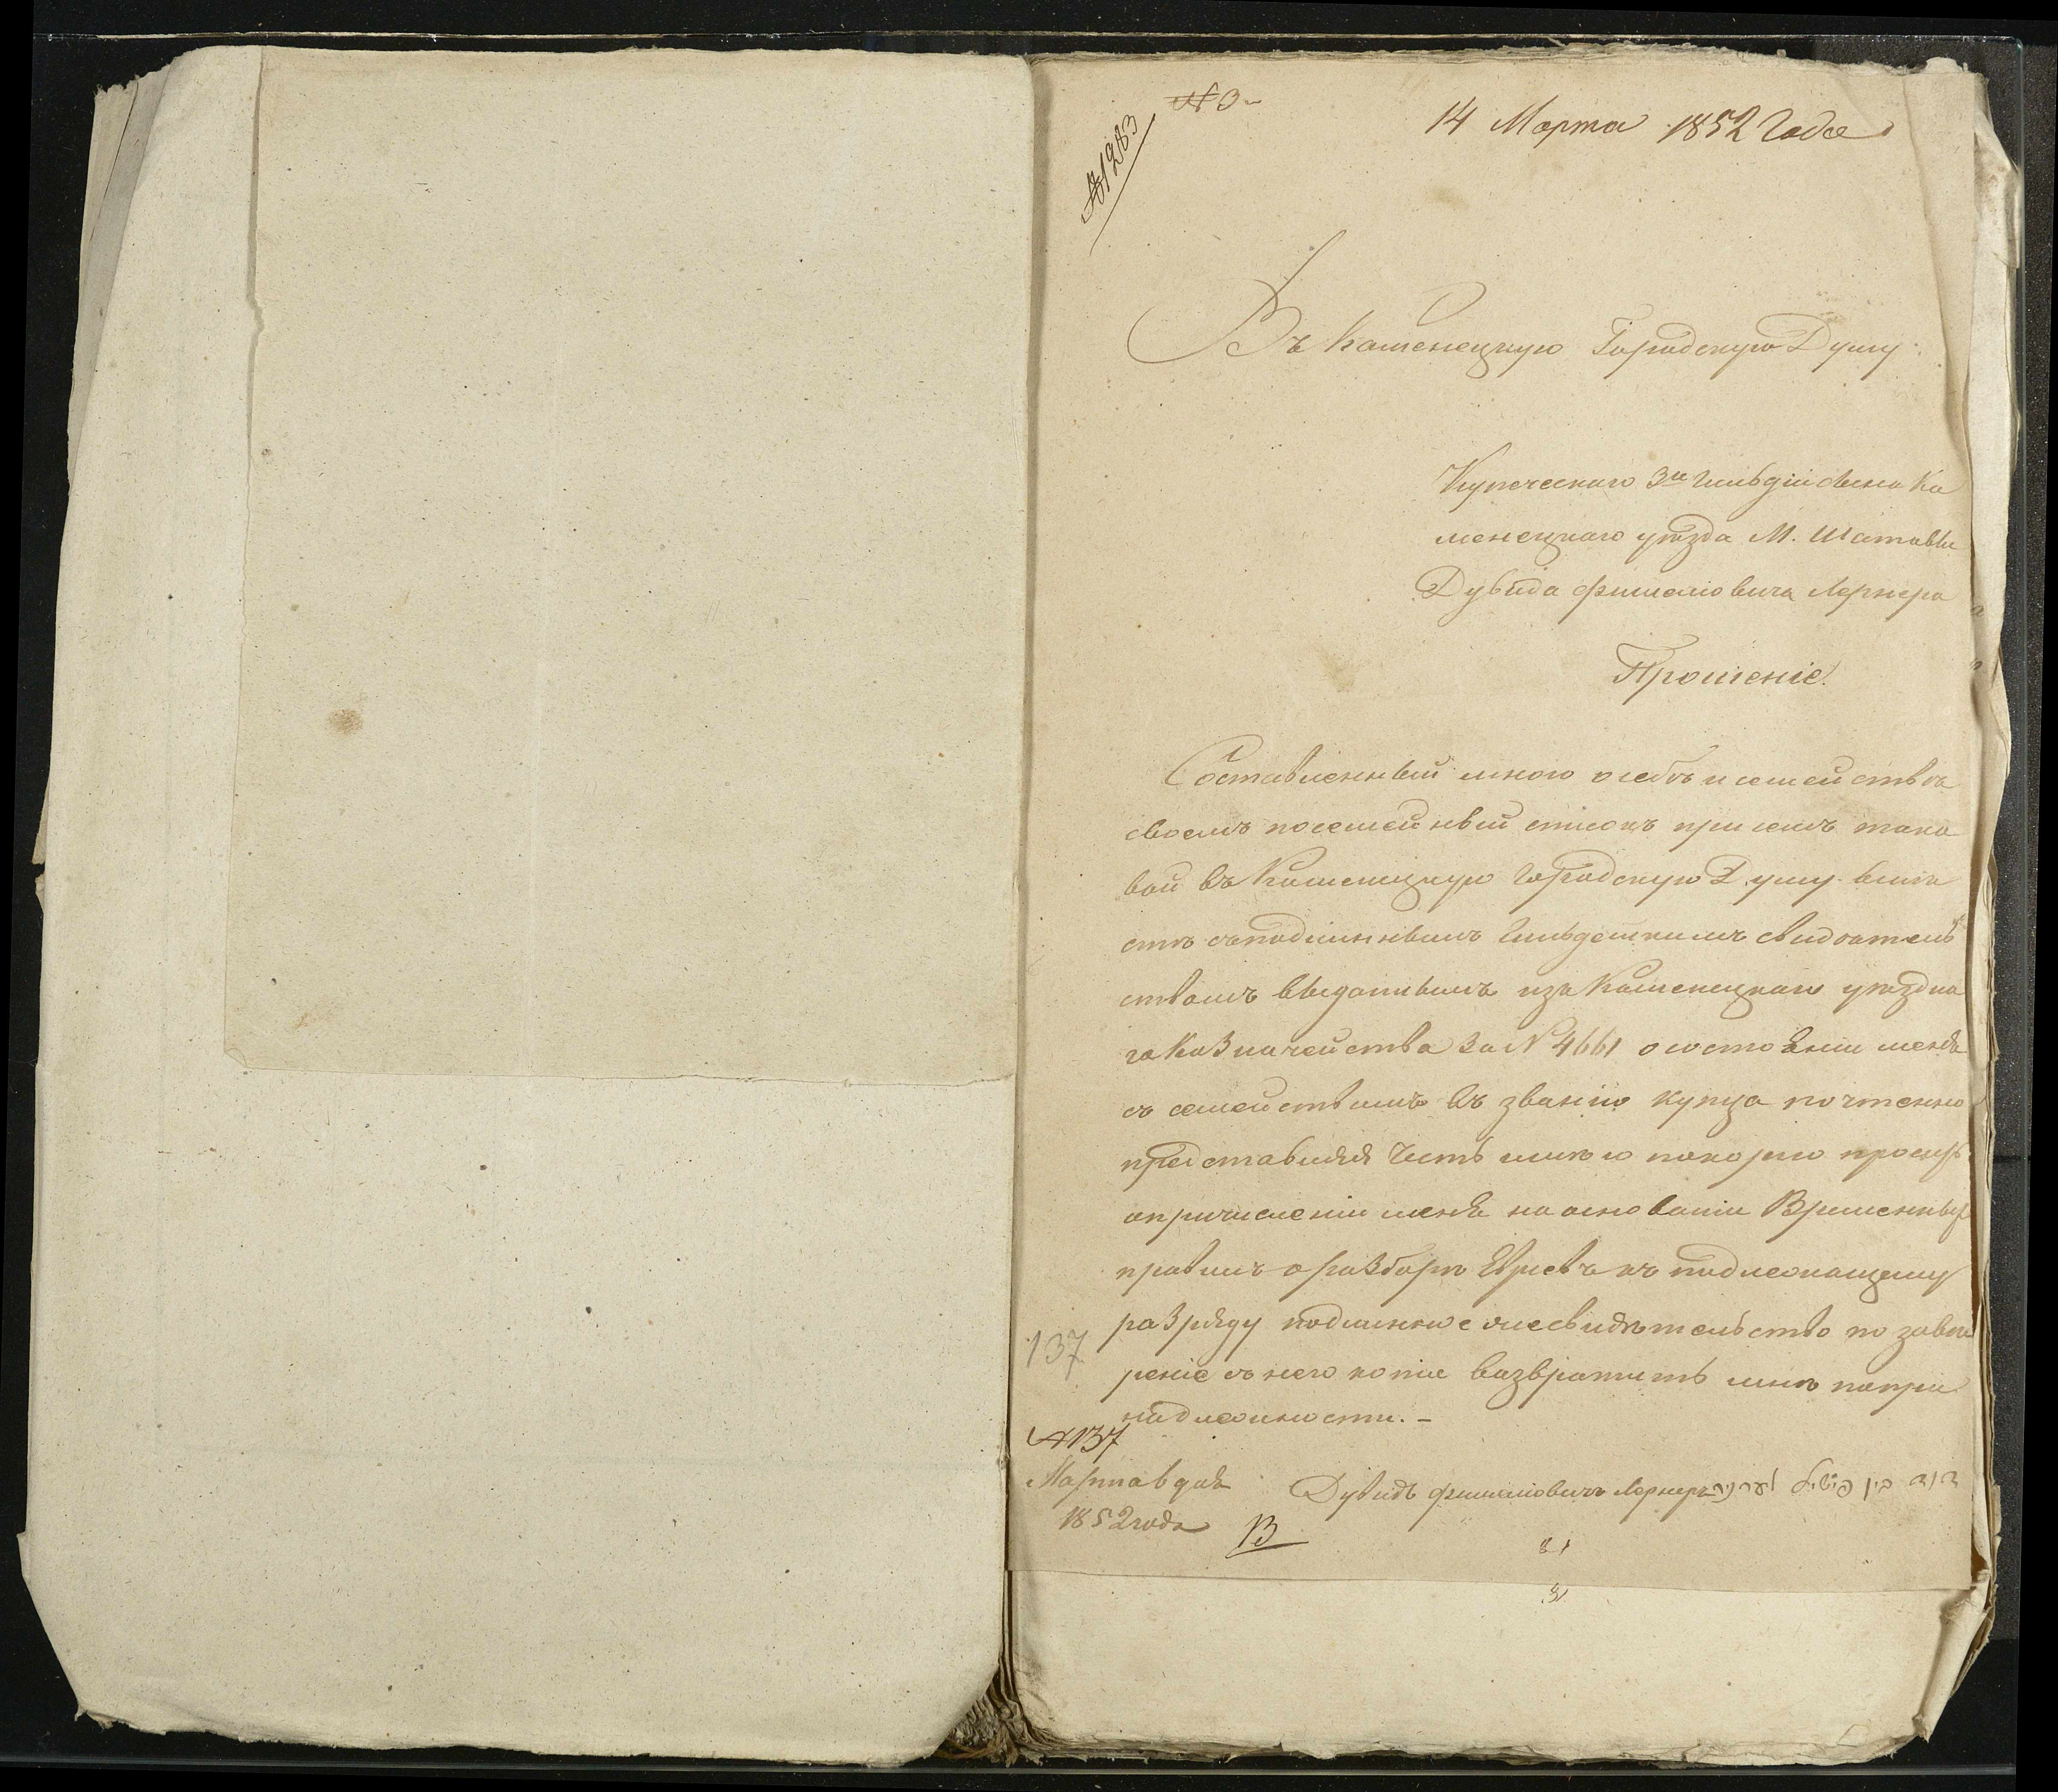 № 3
№ 1283
14 Марта 1852 Года
Въ Каменецкую Городскую Думу.
Купеческаго 3й гильдіи сына Ка
менецкаго уѣзда М. Шатавы
Дувида Фишелiовича Лернера
Прошеніе.
Составленный мною о себѣ и семействѣ
своемъ посемейный списокъ при семъ тако
вой въ Каменецкую Городскую Думу вмѣ
стѣ съ подлиннымъ Гильдейскимъ свидѣтель
ствомъ выданнымъ изъ Каменецкаго уѣздна
го Казначейства за № 4661 о состояніи меня
съ семействомъ въ званію купца почтенно
представляя Честь имѣю покорно просить
о причисленіи меня на основаніи Временных
правилъ о разборѣ Евреевъ къ подлежащему
разряду подлинное же свидѣтельство по завѣ
реніе съ него копіе возвратить мнѣ по при
надлежности. –
№ 137
137
Марта в дня
1852 года
В
Дувидъ Фишелiовичъ Лернеръ דוד בין פישיל לערניר